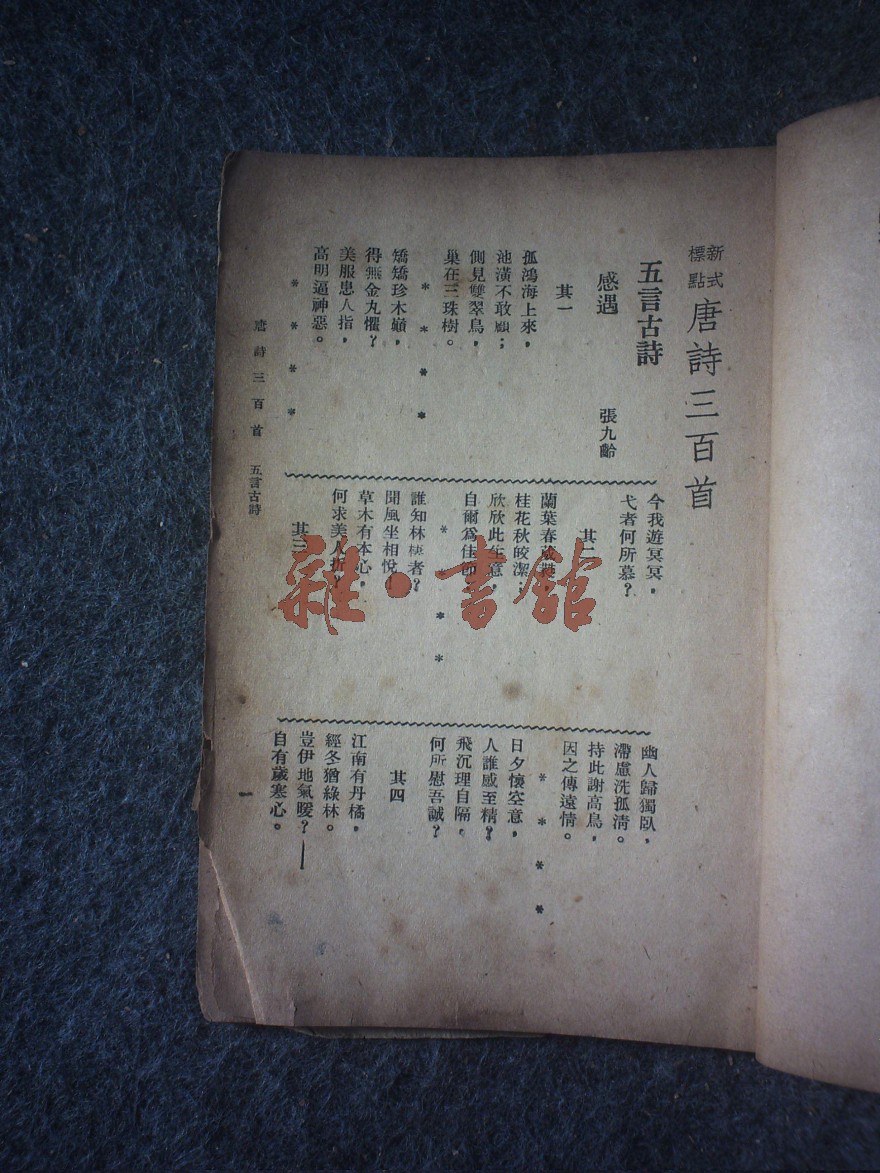 新式標點 唐詩三百首
五言古詩
感遇 張九齡
其一
孤鴻海上來，
池潢不敢顧；
側見雙翠鳥，
巢在三珠樹。
* * * *
矯矯珍木巔，
得無金丸懼？
美服患人指，
高明逼神惡。
* * * *
今我遊冥冥，
弋者何所慕？
其二
蘭葉春
桂花秋皎潔；
欣欣此生意，
自爾爲佳節
* * * *
誰知林棲者？
聞風坐相悅！
草木有本心，
何求美人折？
其三
幽人歸獨臥，
滯慮洗孤清。
持此謝高鳥，
因之傳遠情。
* * * *
日夕懷空意，
人誰感至精？
飛沉理自隔，
何所慰吾誠？
其四
江南有丹橘，
經冬猶綠林。
豈伊地氣暖？——
自有歲寒心。
唐詩三百首 五言古詩
一
雜·書館